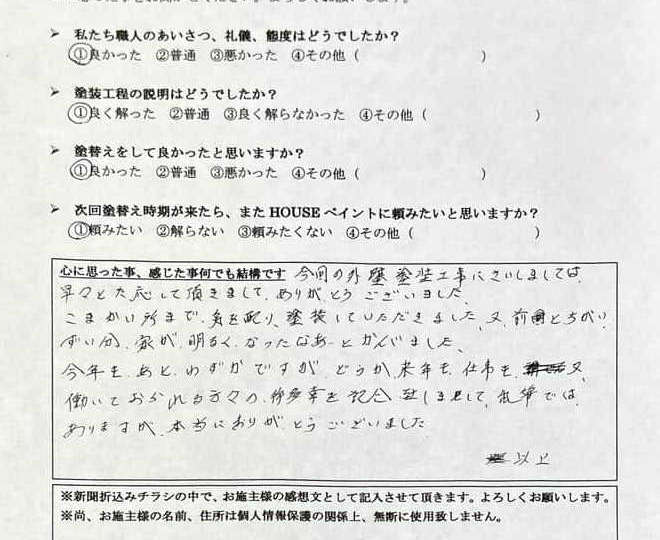 ➢ 私たち職人のあいさつ、礼儀、態度はどうでしたか？
①良かった ②普通 ③悪かった ④その他（ ）
➢ 塗装工程の説明はどうでしたか？
①良く解った ②普通 ③良く解らなかった ④その他（ ）
➢ 塗替えをして良かったと思いますか？
①良かった ②普通 ③悪かった ④その他（ ）
➢ 次回塗替え時期が来たら、また HOUSE ペイントに頼みたいと思いますか？
①頼みたい ②解らない ③頼みたくない ④その他（ ）
心に思った事、感じた事何でも結構です 今回の外壁塗装工事にさいしましては、
早々と対応して頂きまして、ありがとうございました、
こまかい所まで、気を配り、塗装していただきました、又、前回とちがい
ずい分、家が、明るくなったなあーとかんじました、
今年も、あと、わずかですが、どうか、来年も、仕事も、又、
働いておられる方々の、御多幸を記念致しまして、乱筆では、
ありますが、本当にありがとうございました
以上
※新聞折込みチラシの中で、お施主様の感想文として記入させて頂きます。よろしくお願いします。
※尚、お施主様の名前、住所は個人情報保護の関係上、無断に使用致しません。